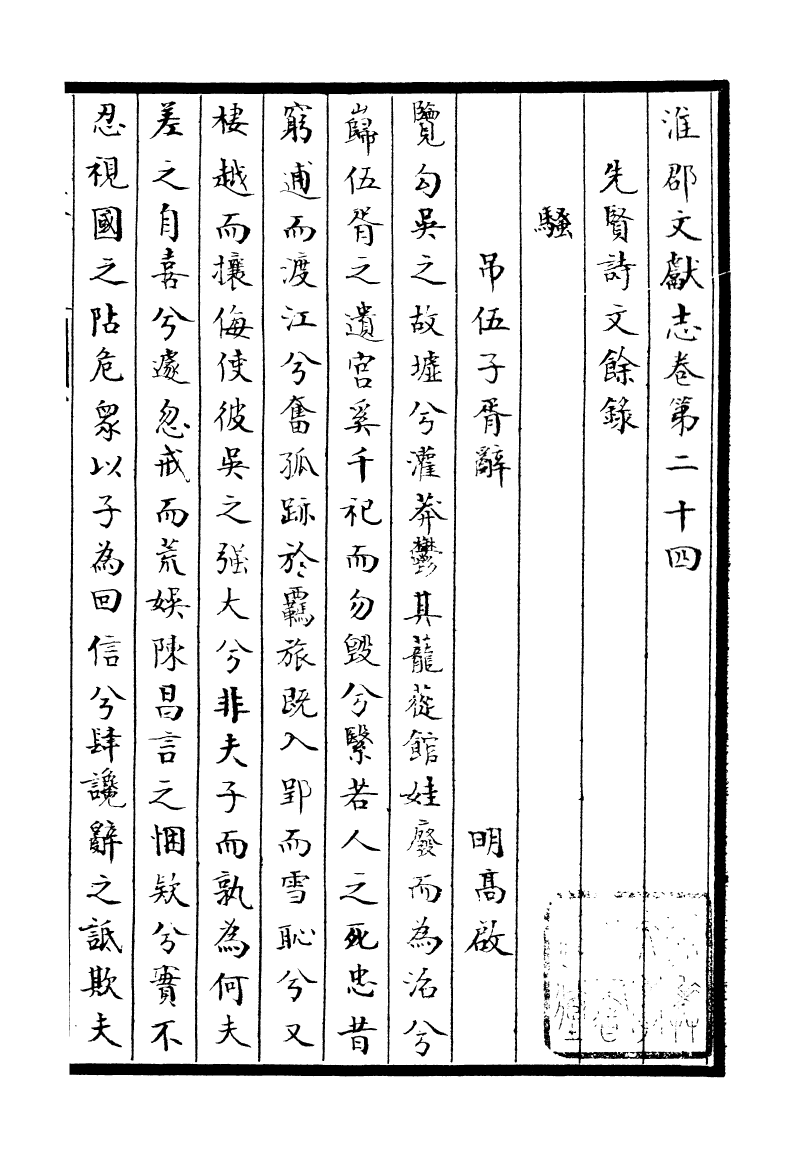 淮郡文獻志卷第二十四
先賢詩文餘錄
騷
吊伍子胥辭 明高啟
覽勾吳之故墟兮灌莽鬱其蘢蓯館娃廢而為沼兮
巋伍胥之遺宮奚千祀而勿毀兮繄若人之死忠昔
窮逋而渡江兮奮孤跡於覊旅既入郢而雪恥兮又
棲越而攘侮使彼吳之強大兮非夫子而孰為何夫
差之自喜兮遽忽戒而荒娛陳昌言之悃欵兮實不
忍視國之阽危眾以子為回信兮肆讒辭之詆欺夫